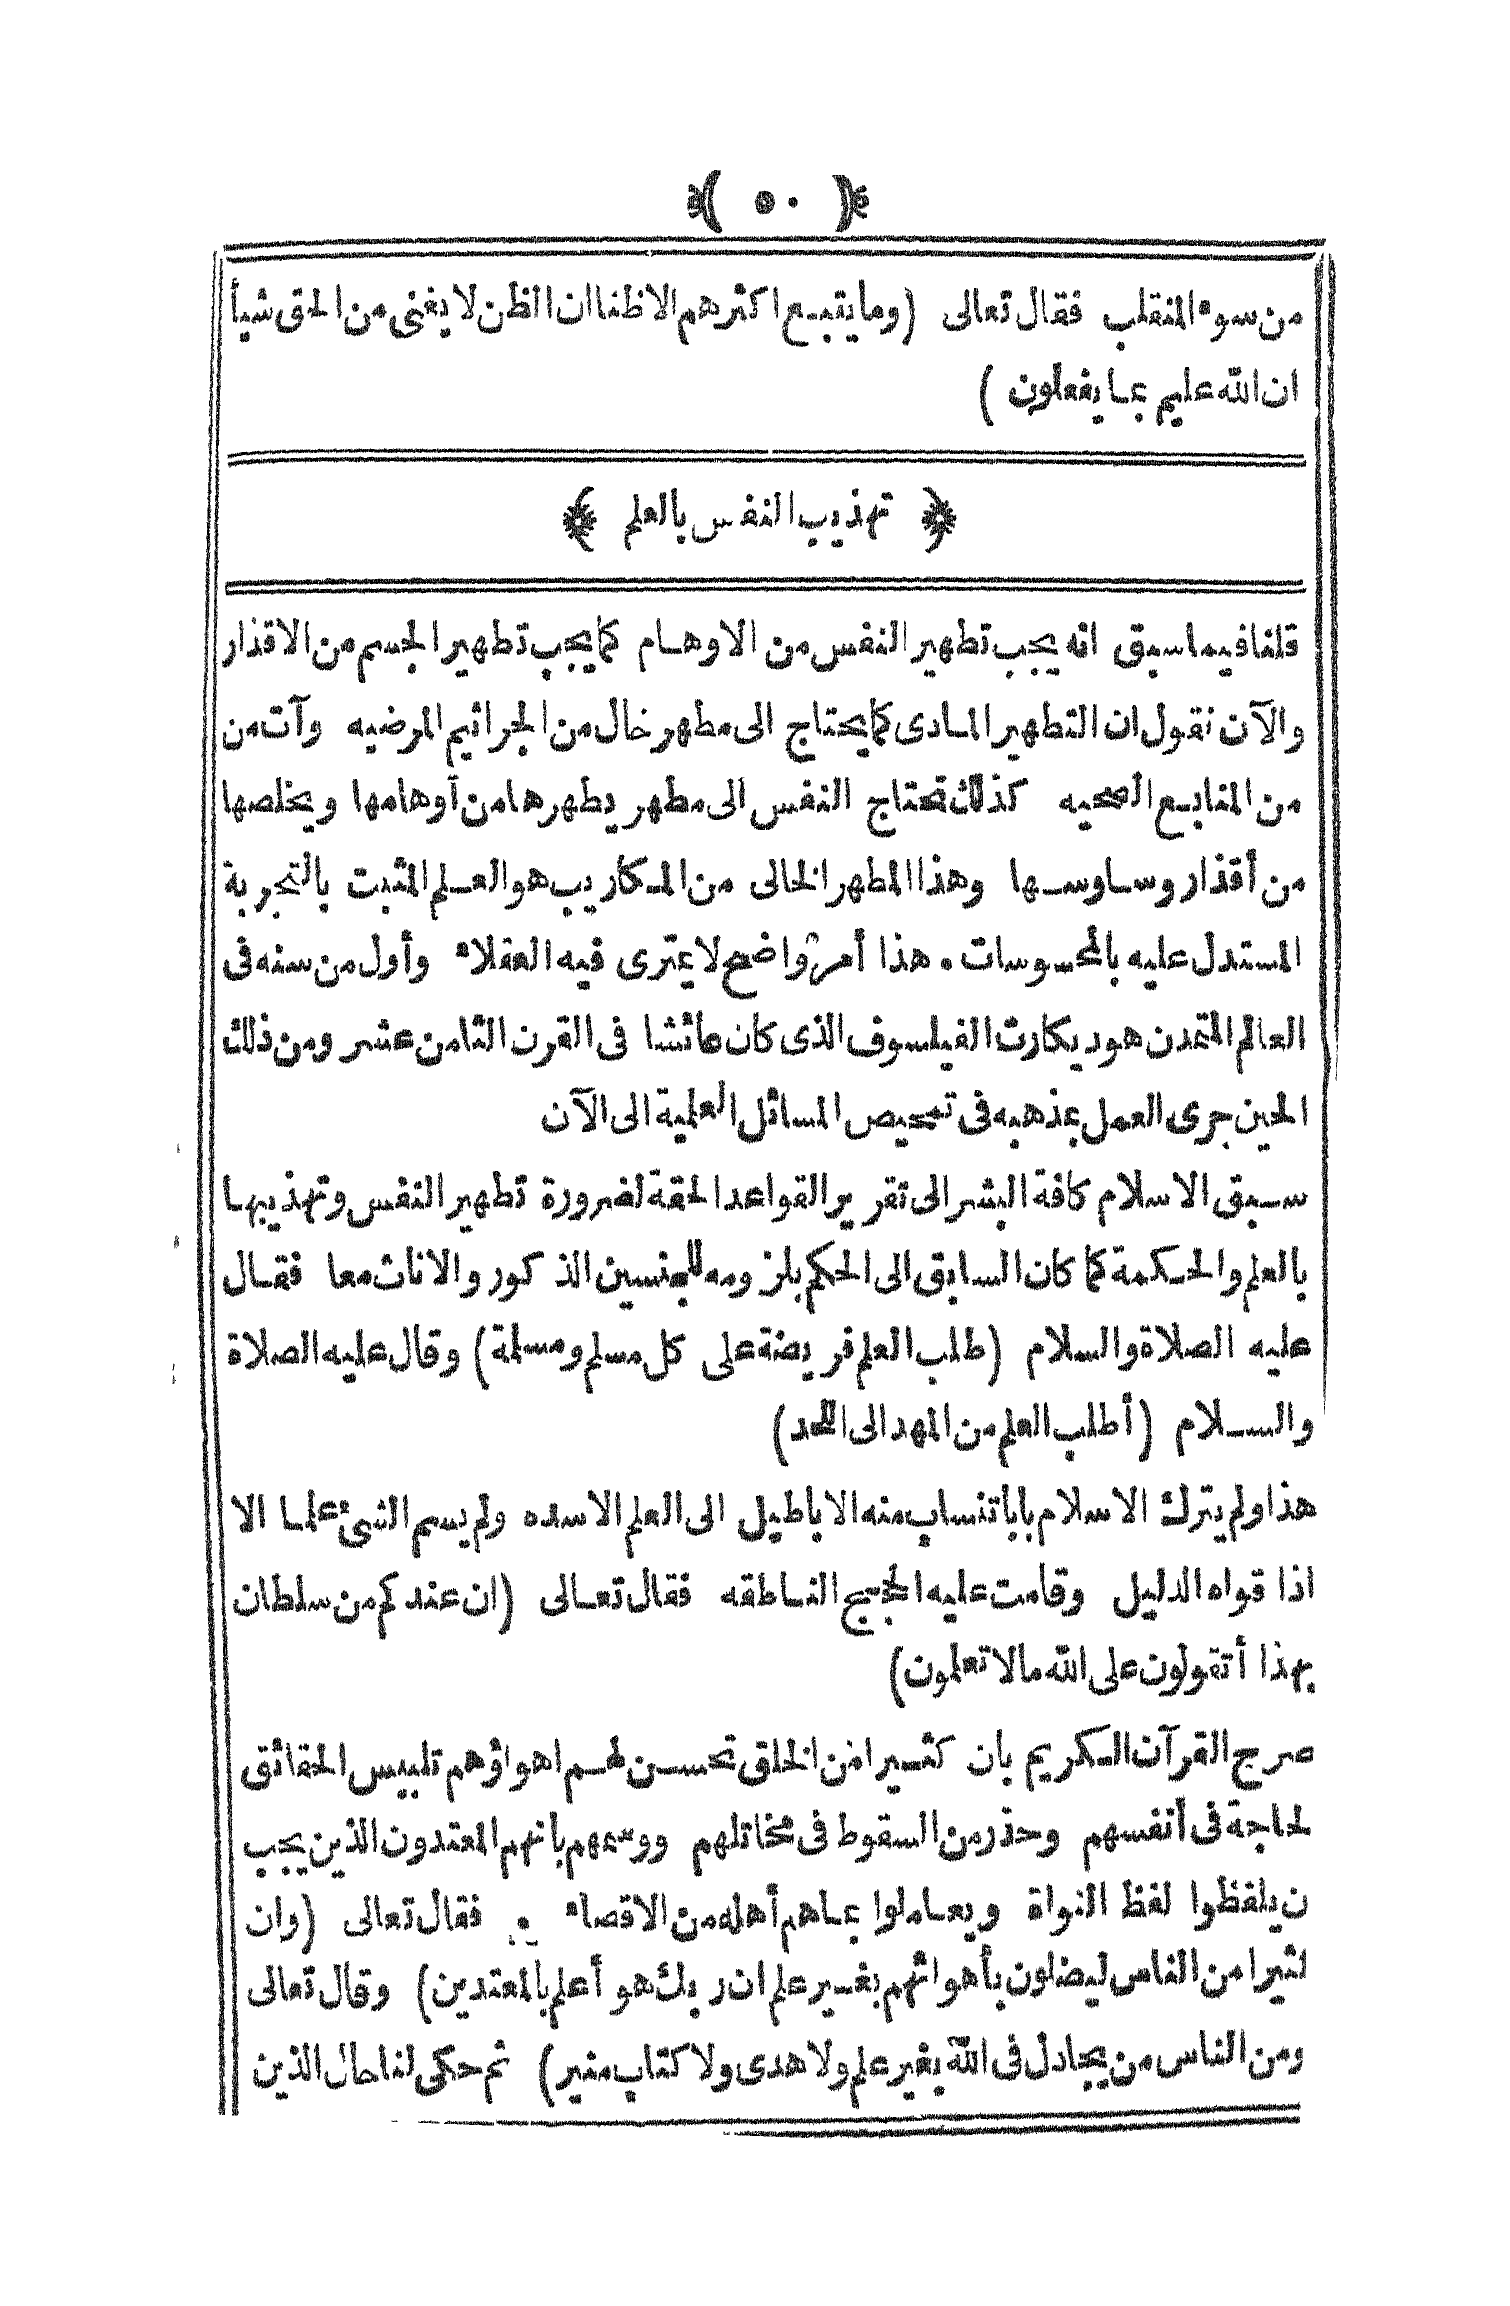 ﴿ ٥٠ ﴾
من سوء المنقلب فقال تعالى (وما يتبع اكثرهم الا ظنا ان الظن لا يغنى من الحق شيأ
ان الله عليم بما يفعلون)
﴿ تهذيب النفس بالعلم ﴾
قلنا فيما سبق انه يجب تطهير النفس من الاوهام كما يجب تطهير الجسم من الاقذار
والآن نقول ان التطهير المادى كما يحتاج الى مطهر خال من الجراثيم المرضيه وآت من
من المنابع الصحيه كذلك تحتاج النفس الى مطهر يطهرها من آوهامها ويخلصها
من أقذار وساوسها وهذا المطهر الخالى من المكاريب هو العلم المثبت بالتجربة
المستدل عليه بالمحسوسات . هذا أمر واضح لا يمترى فيه العقلاء وأول من سنه فى
العالم المتمدن هو ديكارت الفيلسوف الذى كان عائشا فى القرن الثامن عشر ومن ذلك
الحين جرى العمل بمذهبه فى تمحيص المسائل العلمية الى الآن
سبق الاسلام كافة البشر الى تقرير القواعد الحقة لضرورة تطهير النفس وتهذيبها
بالعلم والحكمة كما كان السابق الى الحكم بلزومه للجنسين الذكور والاناث معا فقال
عليه الصلاة والسلام (طلب العلم فريضة على كل مسلم ومسلمة) وقال عليه الصلاة
والسلام (أطلب العلم من المهد الى اللحد)
هذا ولم يترك الاسلام بابأ تنساب منه الاباطيل الى العلم الا سده ولم يسم الشئ علما الا
اذا قواه الدليل وقامت عليه الحجج الناطقه فقال تعالى (ان عندكم من سلطان
بهذا أتقولون على الله مالا تعلمون)
صرح القرآن الكريم بان كثيرا من الخلق تحسن لهم اهواؤهم تلبيس الحقائق
لحاجة فى أنفسهم وحذر من السقوط فى مخاتلهم ووسمهم بانهم المعتدون الذين يجب
ن يلفظوا لفظ النواة ويعاملوا بما هم أهله من الاقصاء فقال تعالى (وان
لثيرا من الناس ليضلون بأهوائهم بغير علم ان ربك هو أعلم بالمعتدين) وقال تعالى
ومن الناس من يجادل فى الله بغير علم ولا هدى ولا كتاب منير) ثم حكى لنا حال الذين